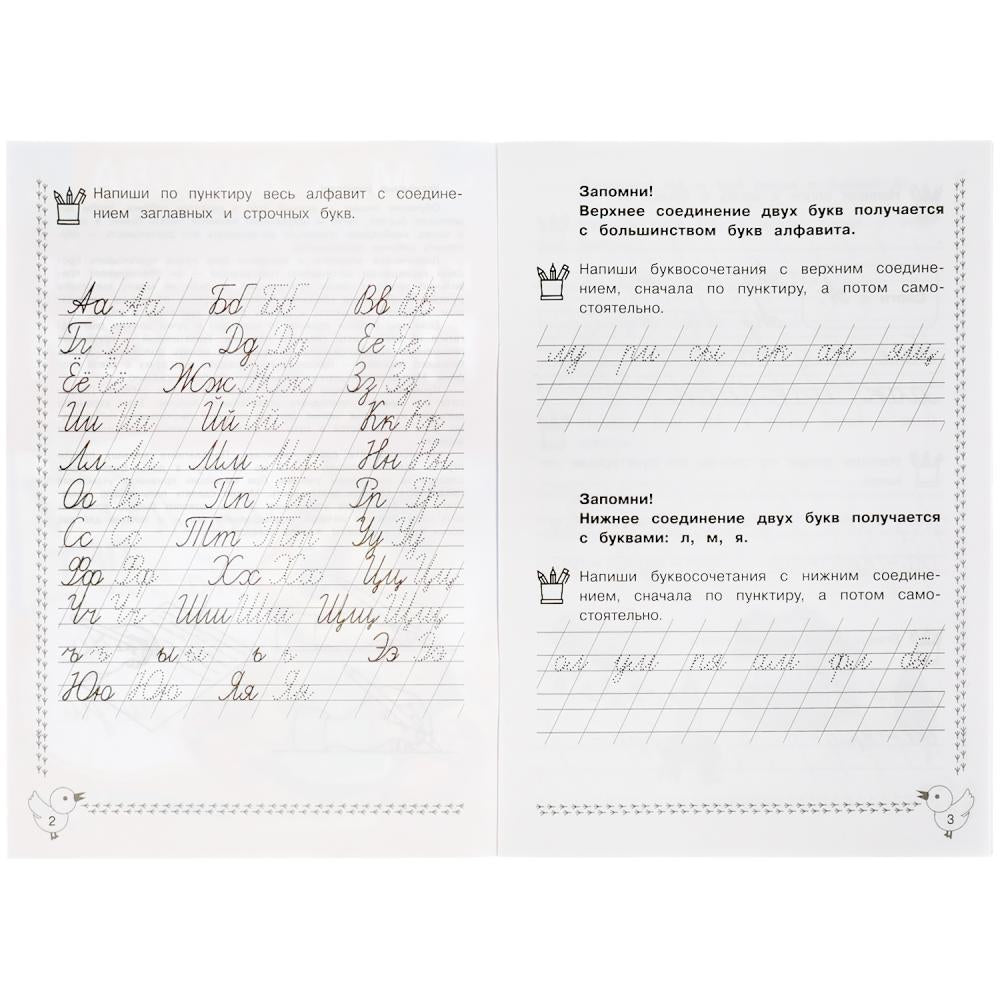 Напиши по пунктиру весь алфавит с соедине-
нием заглавных и строчных букв.
Аа Аа Бб Бб Вв Вв
Гг Гг Дд Дд Ее Ее
Ёё Ёё Жж Жж Зз Зз
Ии Ии Йй Йй Кк Кк
Лл Лл Мм Мм Нн Нн
Оо Оо Пп Пп Рр Рр
Сс Сс Тт Тт Уу Уу
Фф Фф Хх Хх Цц Цц
Чч Чч Шш Шш Щщ Щщ
ъ ъ ы ы ь ь Ээ Ээ
Юю Юю Яя Яя
2
Запомни!
Верхнее соединение двух букв получается
с большинством букв алфавита.
Напиши буквосочетания с верхним соедине-
нием, сначала по пунктиру, а потом само-
стоятельно.
му ри сы ок ан
Запомни!
Нижнее соединение двух букв получается
с буквами: л, м, я.
Напиши буквосочетания с нижним соедине-
нием, сначала по пунктиру, а потом само-
стоятельно.
ум ня ам бя
3